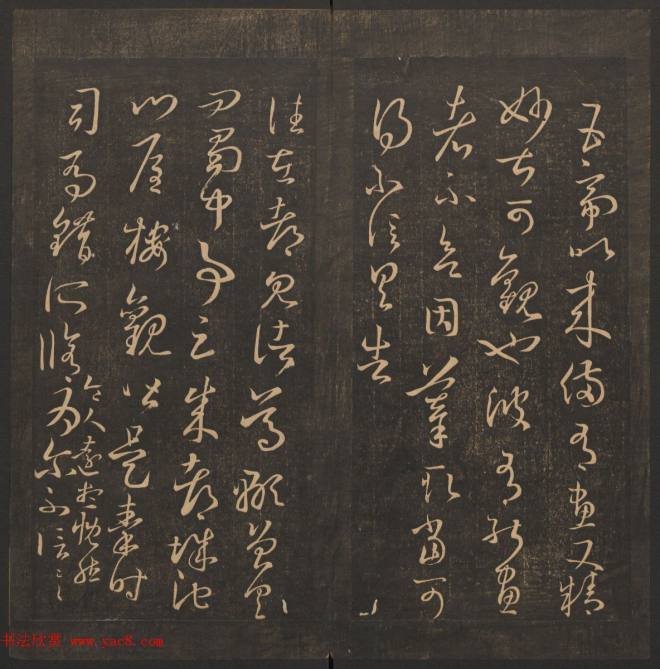 五帝以來備有畫又精
妙甚可觀也彼有能畫
者不欲因摹取當可
得不信具告
往在都見諸葛顒曾具
問蜀中事云成都城池
門屋樓觀皆是秦時
司馬錯所脩令人遠想慨然
為爾不信一一
书法欣赏 www.yac8.com